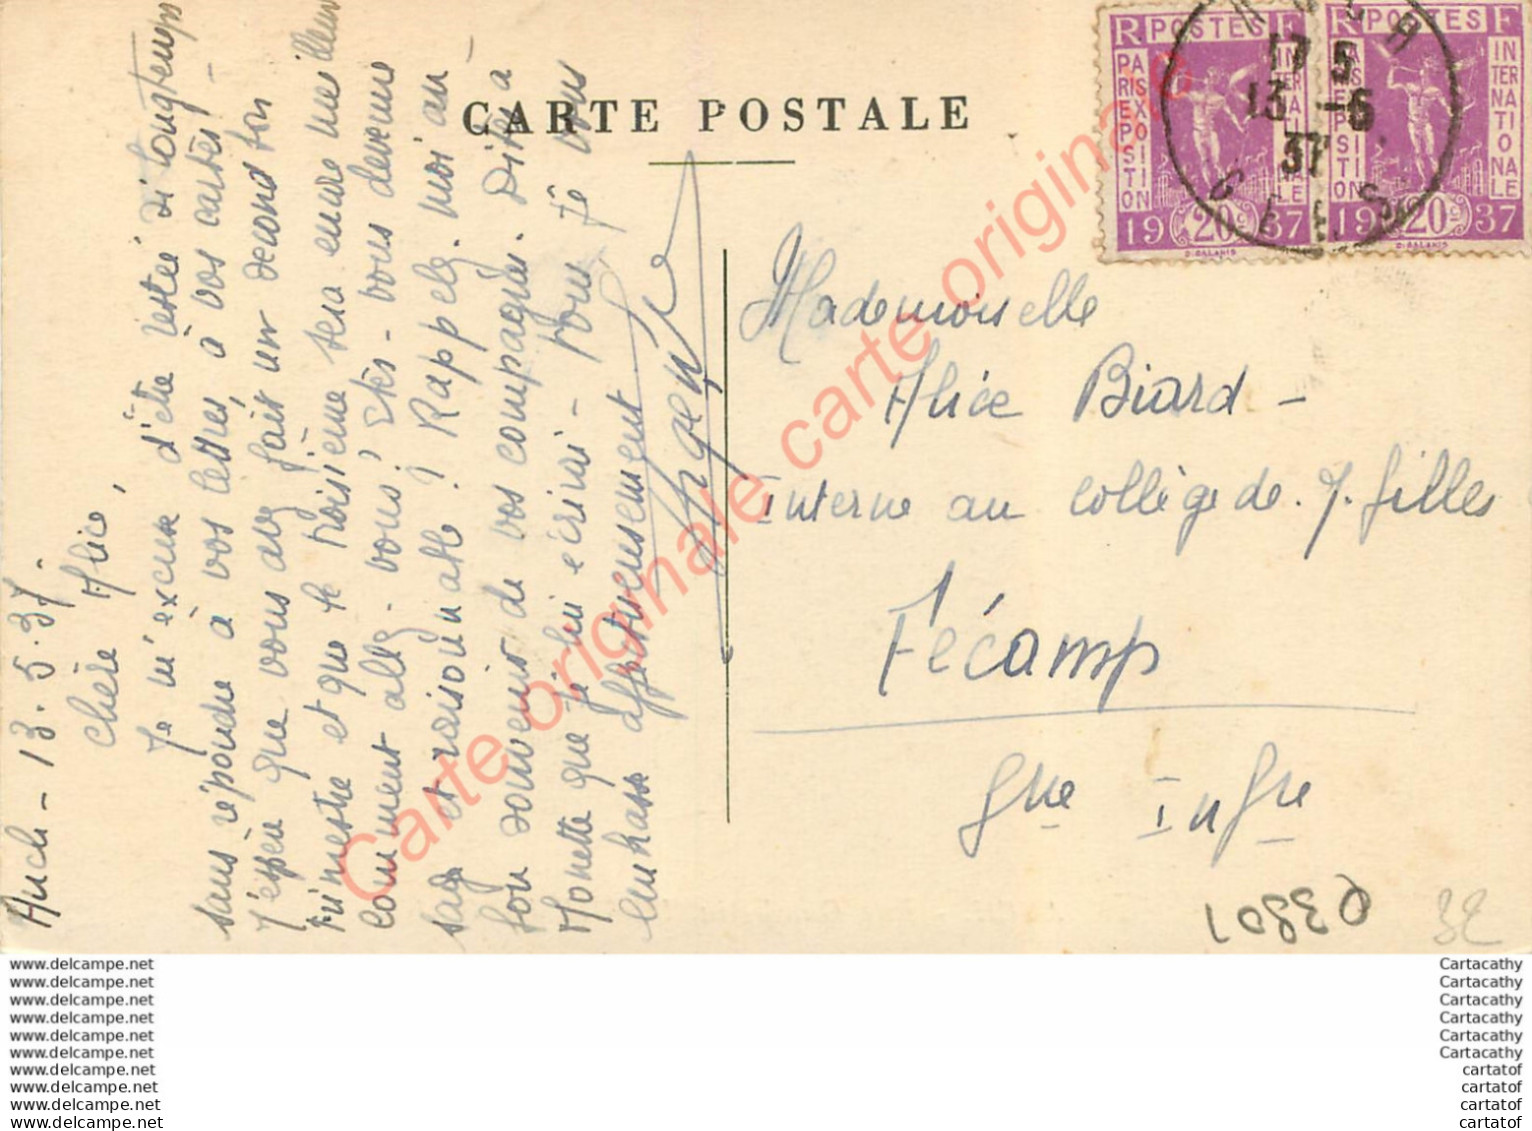 CARTE POSTALE
RF POSTES
PARIS EXPOSITION
INTERNATIONALE
1937
20c
RF POSTES
PARIS EXPOSITION
INTERNATIONALE
1937
20c
AUCH
17 5
13 -6
37
GERS
Auch - 13.5.37.
Chère Alice,
Je m'excuse d'être restée si longtemps
sans répondre à vos lettres, à vos cartes -
J'espère que vous avez fait un second bon
trimestre et que le troisième sera encore meilleur
comment allez-vous? Etes-vous devenue
sage et raisonnable? Rappelez-moi au
bon souvenir de vos compagnes. Dites à
Monette que je lui écrirai -
Je vous
embrasse affectueusement
Mademoiselle
Alice Biard -
Interne au collège de J. filles
Fécamp
Sne Infre
03801
3E
Carte originale carte originale
www.delcampe.net
www.delcampe.net
www.delcampe.net
www.delcampe.net
www.delcampe.net
www.delcampe.net
www.delcampe.net
www.delcampe.net
www.delcampe.net
www.delcampe.net
Cartacathy
Cartacathy
Cartacathy
Cartacathy
Cartacathy
Cartacathy
cartatof
cartatof
cartatof
cartatof